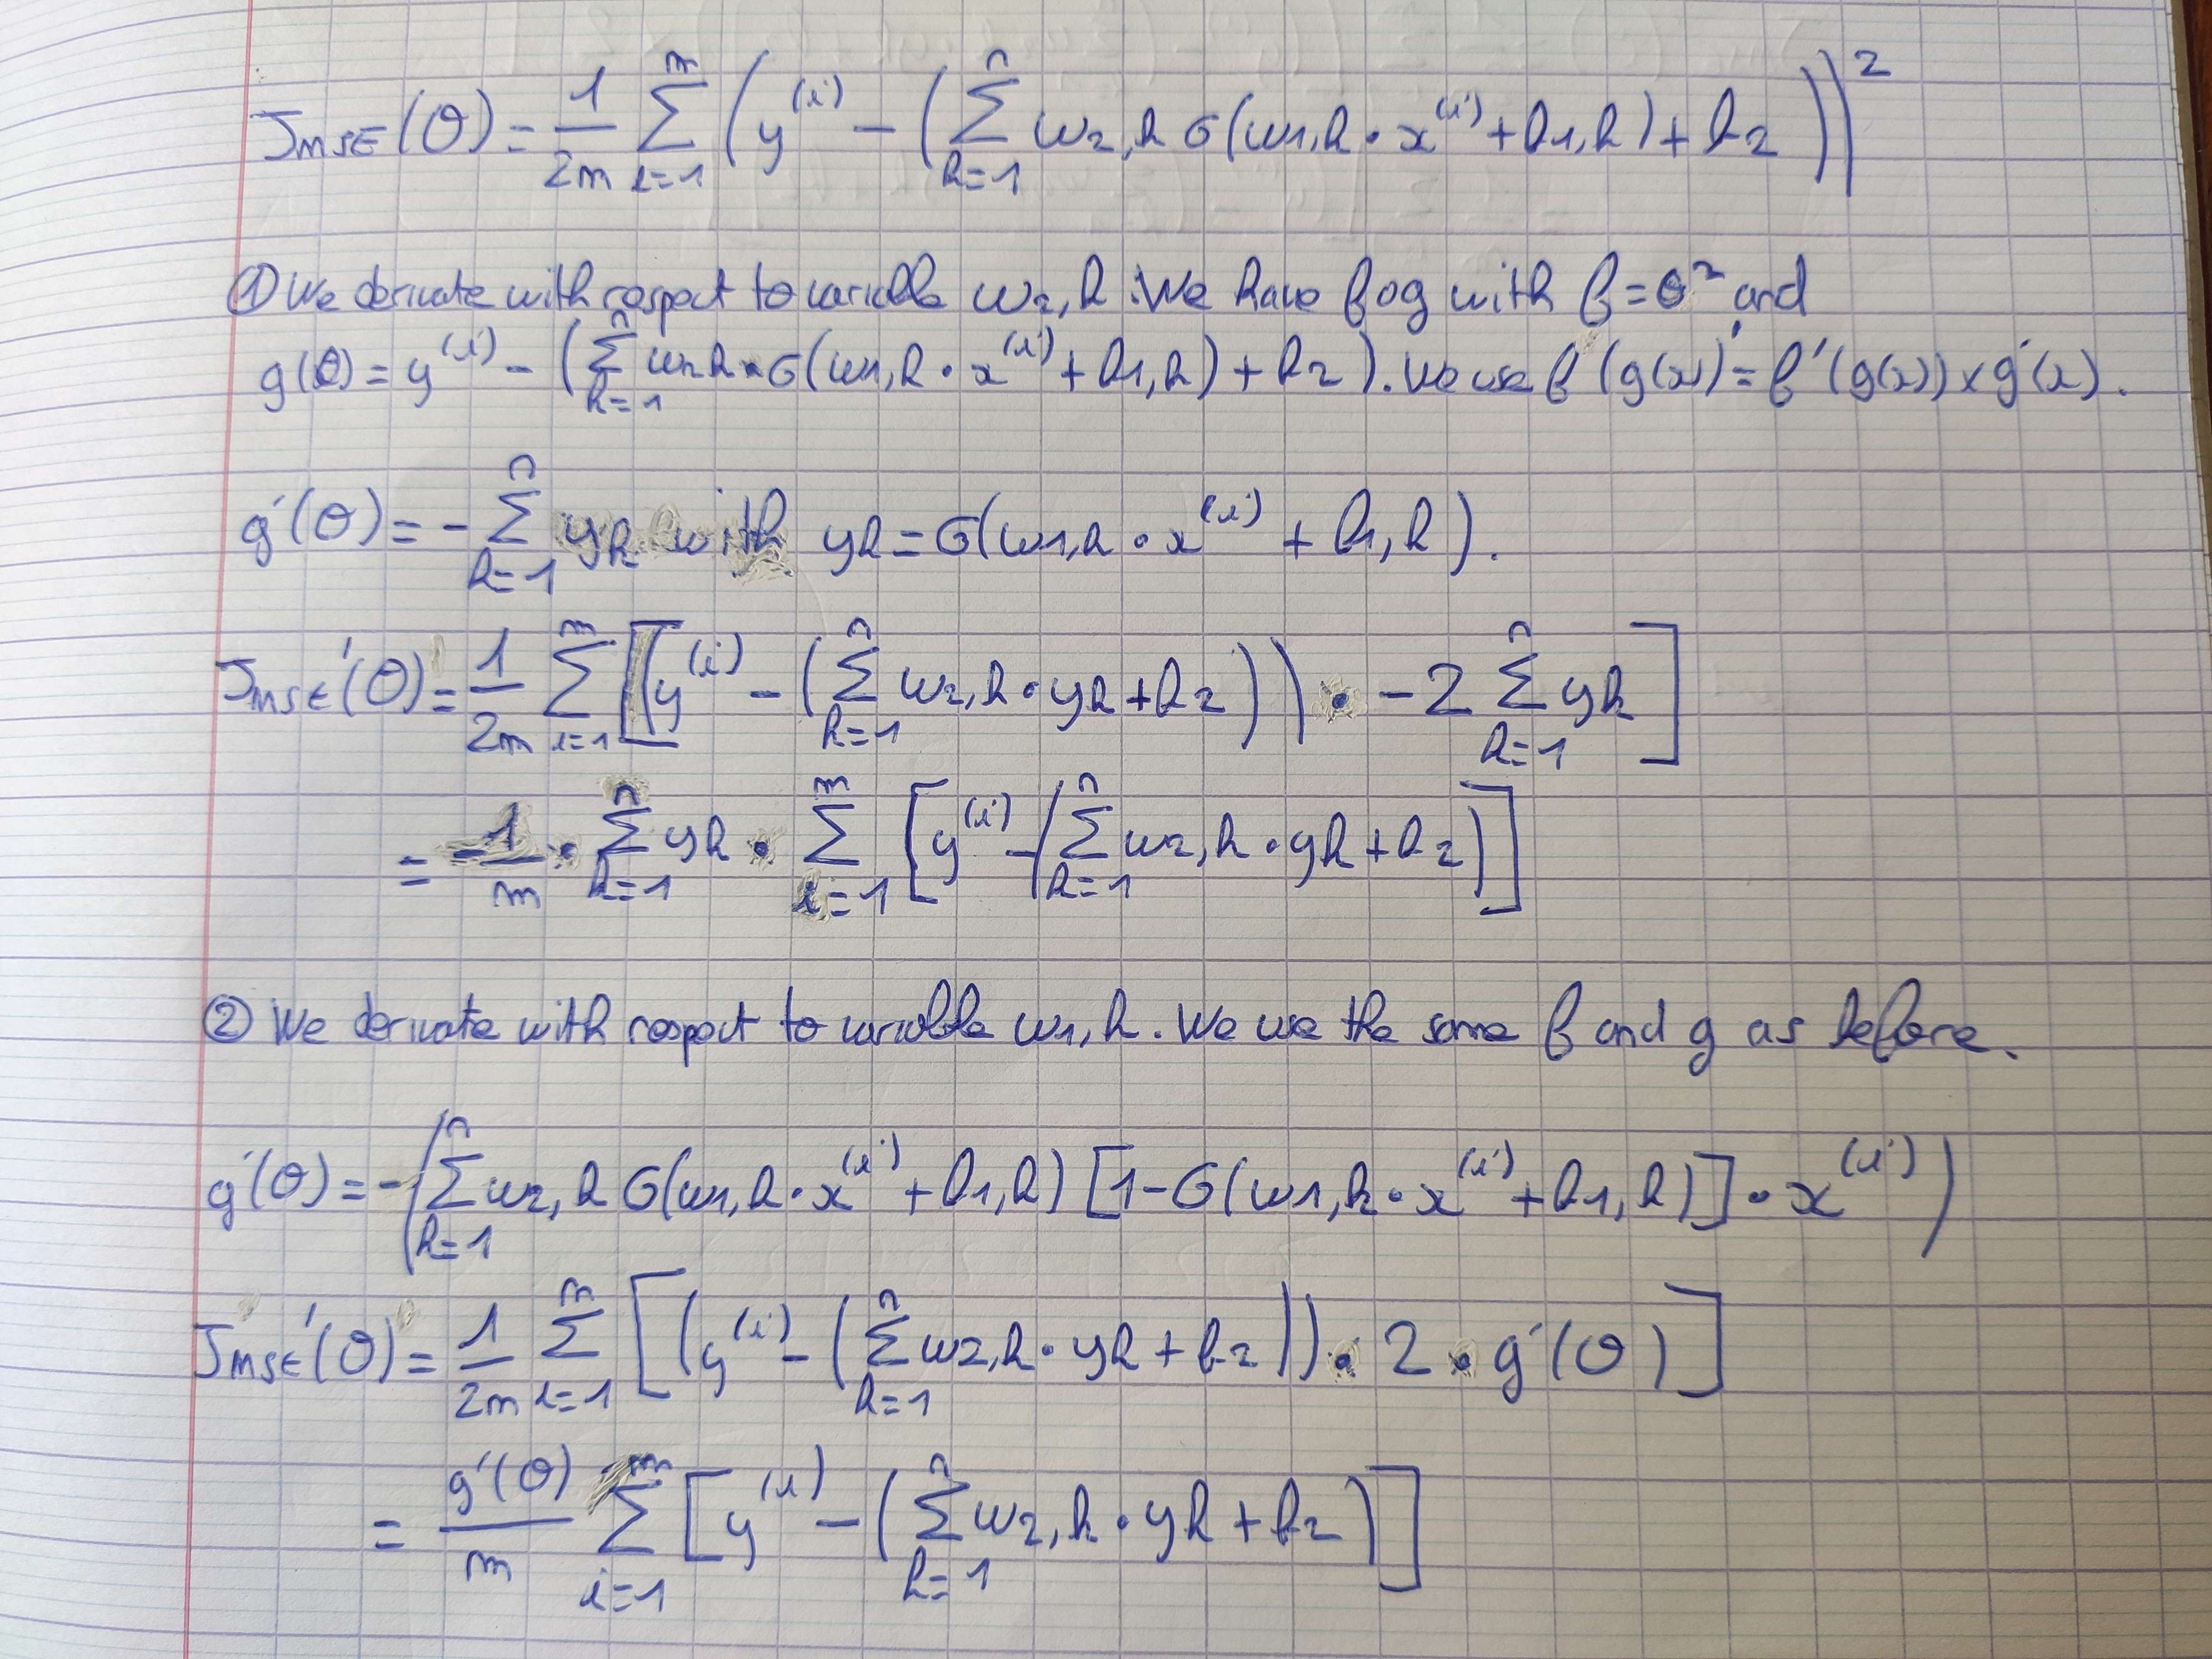 J_MSE(θ) = 1/2m Σ_{i=1}^{m} (y^(i) − (Σ_{k=1}^{n} w2,k σ(w1,k • x^(i) + b1,k) + b2))^2
① We derivate with respect to variable w2,k. We have fog with f = θ^2 and
g(θ) = y^(i) − (Σ_{k=1}^{n} w2,k • σ(w1,k • x^(i) + b1,k) + b2). We use f(g(x))' = f'(g(x)) × g'(x).
g'(θ) = − Σ_{k=1}^{n} yk with yk = σ(w1,k • x^(i) + b1,k).
J_MSE'(θ) = 1/2m Σ_{i=1}^{m} [(y^(i) − (Σ_{k=1}^{n} w2,k • yk + b2)) • −2 Σ_{k=1}^{n} yk]
= −1/m • Σ_{k=1}^{n} yk • Σ_{i=1}^{m} [y^(i) − (Σ_{k=1}^{n} w2,k • yk + b2)]
② We derivate with respect to variable w1,k. We use the same f and g as before.
g'(θ) = −(Σ_{k=1}^{n} w2,k σ(w1,k • x^(i) + b1,k) [1 − σ(w1,k • x^(i) + b1,k)] • x^(i))
J_MSE'(θ) = 1/2m Σ_{i=1}^{m} [(y^(i) − (Σ_{k=1}^{n} w2,k • yk + b2)) • 2 • g'(θ)]
= g'(θ)/m Σ_{i=1}^{m} [y^(i) − (Σ_{k=1}^{n} w2,k • yk + b2)]